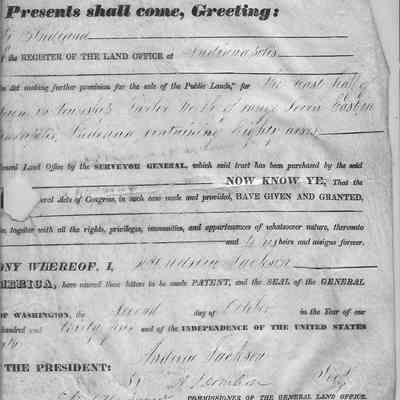 Presents shall come, Greeting:
Indiana
the REGISTER OF THE LAND OFFICE at Indianapolis
Act making further provision for the sale of the Public Lands," for the east half of
in township twelve North of range seven East in
Indiana containing Eighty acres
Land Office by the SURVEYOR GENERAL, which said tract has been purchased by the said
NOW KNOW YE, That the
Acts of Congress, in such case made and provided, HAVE GIVEN AND GRANTED,
together with all the rights, privileges, immunities, and appurtenances of whatsoever nature, thereunto
and to heirs and assigns forever.
ONY WHEREOF, I, Andrew Jackson
MERICA, have caused these letters to be made PATENT, and the SEAL of the GENERAL
OF WASHINGTON, the Second day of October in the Year of our
hundred and and of the INDEPENDENCE OF THE UNITED STATES
Andrew Jackson
THE PRESIDENT:
By A. J. Donelson Secy
COMMISSIONER OF THE GENERAL LAND OFFICE.